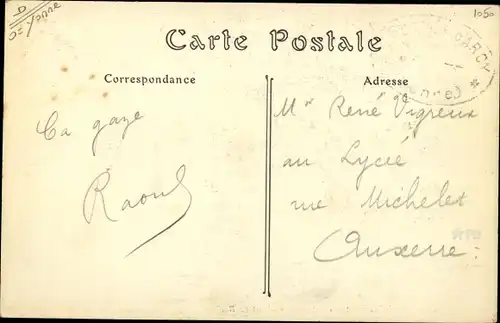 D
St Yonne
1050
Carte Postale
Correspondance
Adresse
Ca gaze
Raoul
Mr René Vigreux
au Lycée
rue Michelet
Auxerre